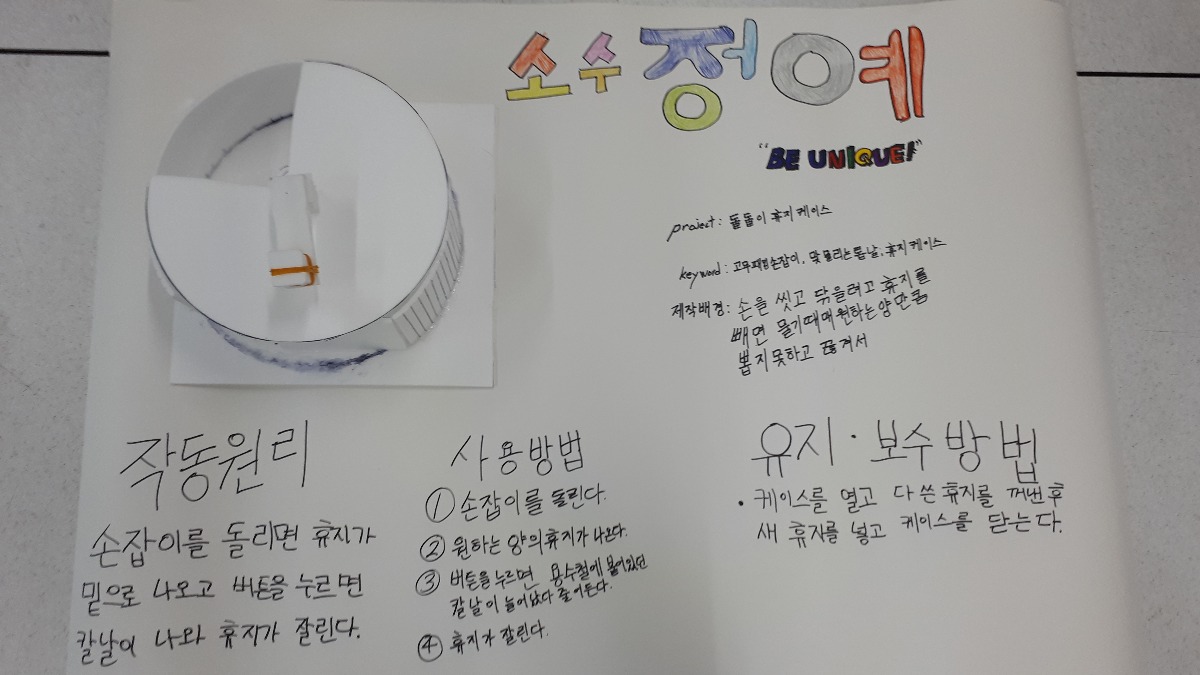 소수정예
"BE UNIQUE!"
project: 돌돌이 휴지케이스
keyword: 고무패킹손잡이, 맞물리는톱날, 휴지케이스
제작배경: 손을 씻고 닦을려고 휴지를
빼면 물기때매 원하는양만큼
뽑지못하고 끊겨서
작동원리
손잡이를 돌리면 휴지가
밑으로 나오고 버튼을 누르면
칼날이 나와 휴지가 잘린다.
사용방법
① 손잡이를 돌린다.
② 원하는 양의 휴지가 나온다.
③ 버튼을 누르면 용수철에 붙어있던
칼날이 늘어났다 줄어든다.
④ 휴지가 잘린다.
유지·보수방법
• 케이스를 열고 다 쓴 휴지를 꺼낸후
새 휴지를 넣고 케이스를 닫는다.